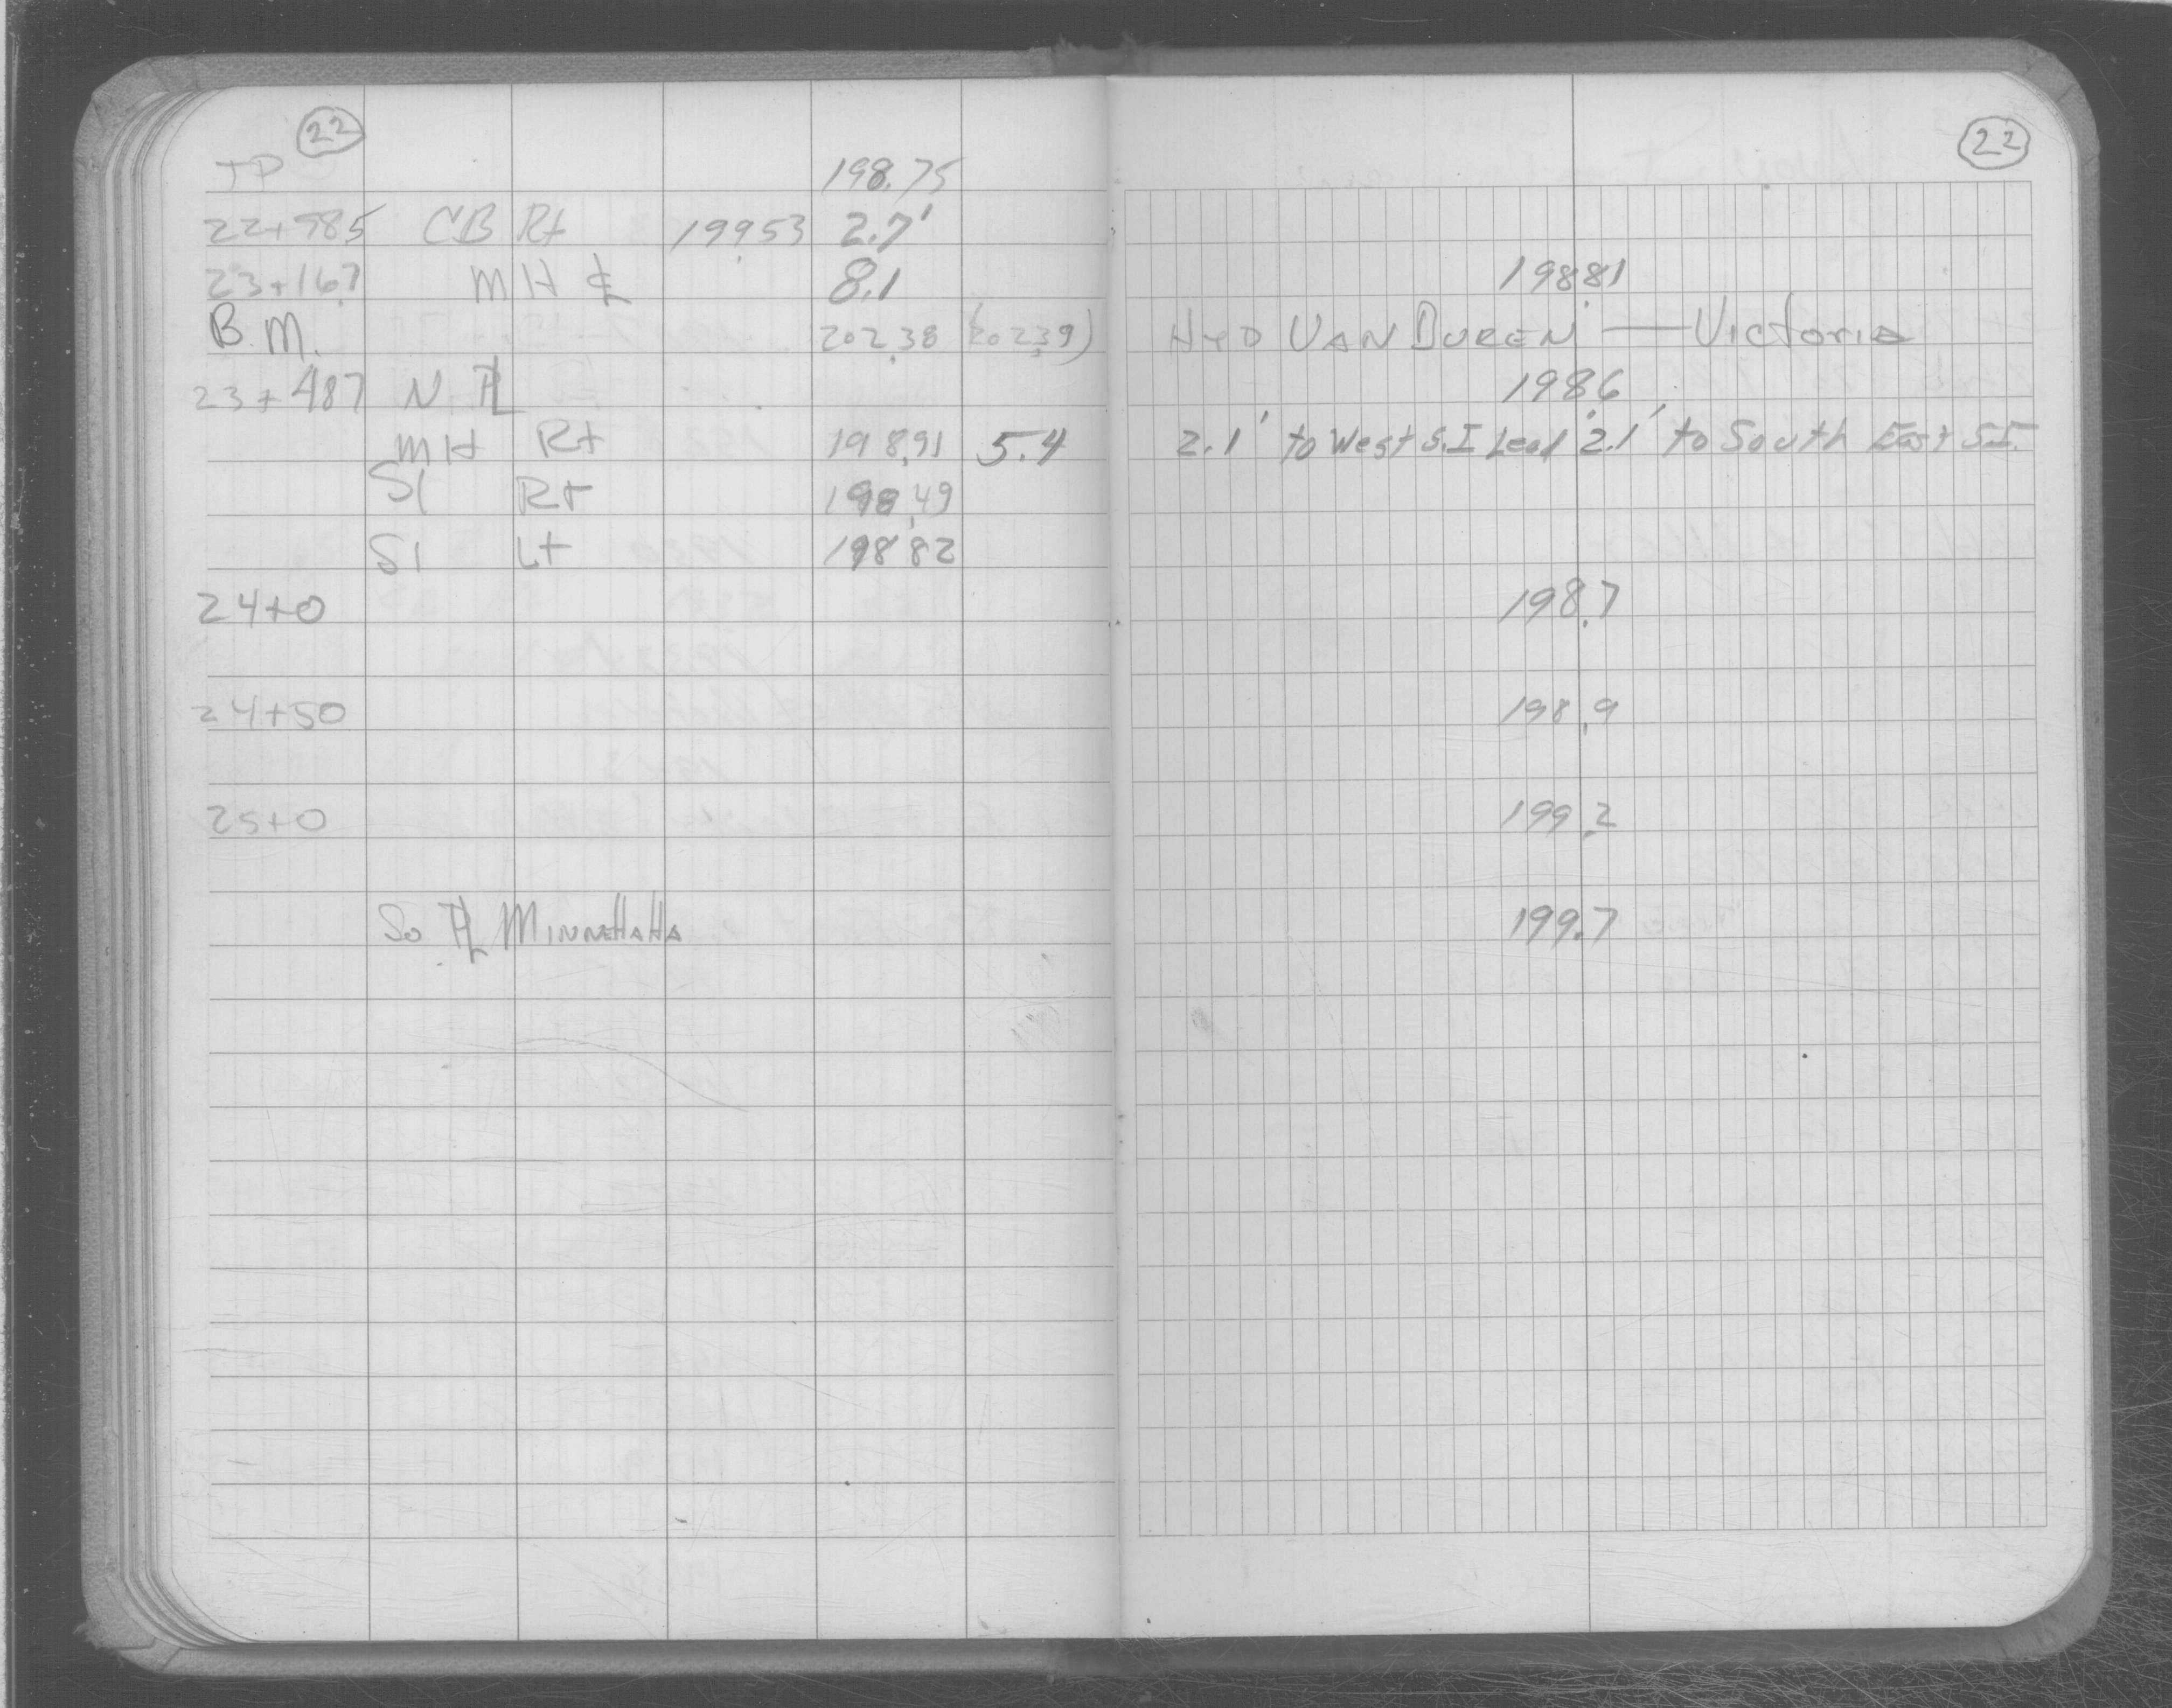 22 22
TP 198.75
22+985 CB Rt 199.53 2.7'
23+16.7 MH ℄ 8.1 198.81
B.M. 202.38 (202.39) HYD VAN BUREN — Victoria
23+487 N ⅊ 198.6
MH Rt 198.91 5.4 2.1' to West S.I Lead 2.1' to South East S.I.
SI Rt 198.49
SI Lt 198.82
24+0 198.7
24+50 198.9
25+0 199.2
So ⅊ MINNEHAHA 199.7